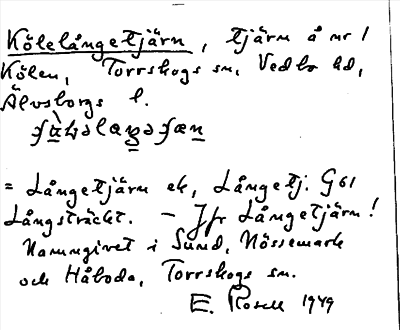 Kölelångetjärn, tjärn å nr 1
Kölen, Torrskogs sn, Vedbo hd,
Älvsborgs l.
= Långetjärn ek, Långetj. G61
Långsträckt. — Jfr Långetjärn!
Namngivet i Sund, Nössemark
och Håbode, Torrskogs sn.
E. Rosell 1949